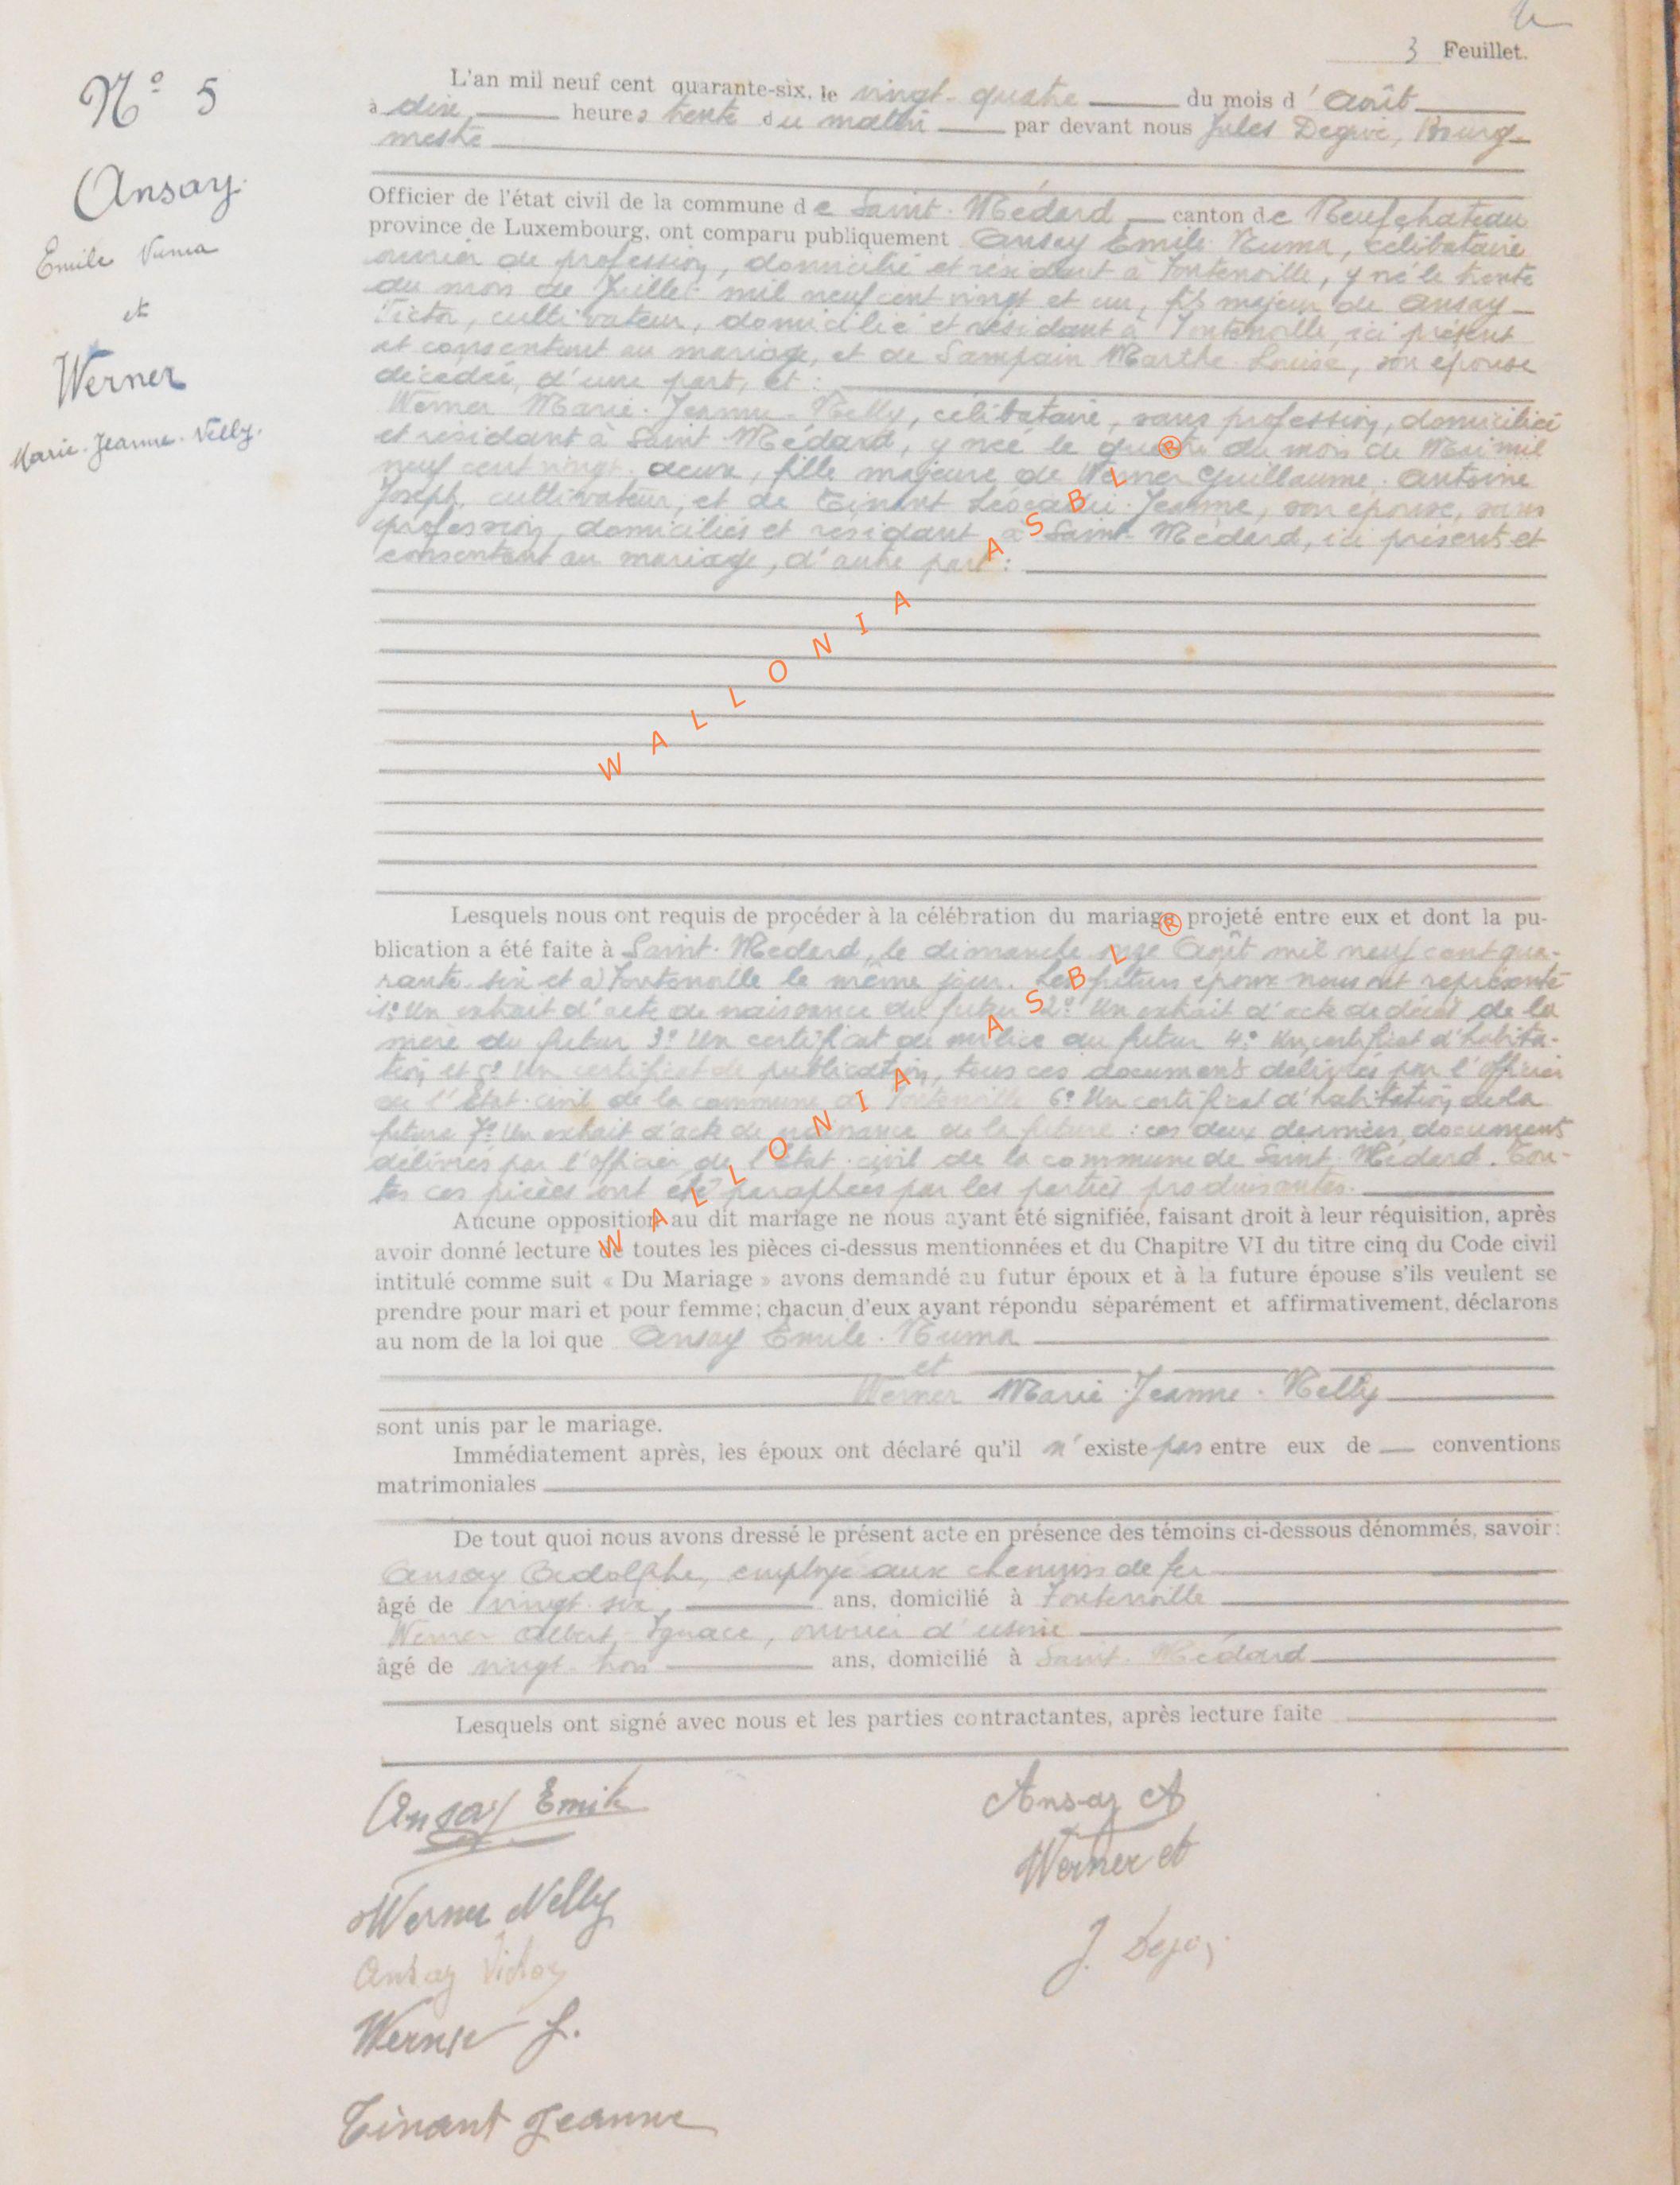 3 Feuillet.
N° 5
Ansay
Emile Numa
et
Werner
Marie-Jeanne-Nelly.
L'an mil neuf cent quarante-six, le vingt-quatre du mois d'Août
à dix heures trente du matin par devant nous Jules Bourg-
mestre
Officier de l'état civil de la commune de Saint-Médard canton de Neufchateau
province de Luxembourg, ont comparu publiquement Ansay Emile Numa, célibataire
ouvrier de profession, domicilié et résidant à Fontenoille, y né le trente
du mois de Juillet mil neuf cent vingt et un, fils majeur de Ansay
Victor, cultivateur, domicilié et résidant à Fontenoille, ici présent
et consentant au mariage, et de Sampain Marthe Louise, son épouse
décédée, d'une part, et :
Werner Marie-Jeanne-Nelly, célibataire, sans profession, domiciliée
et résidant à Saint-Médard, y née le quatre du mois de Mai mil
neuf cent vingt-deux, fille majeure de Werner Guillaume-Antoine
Joseph, cultivateur, et de Tinant Léocadie-Jeanne, son épouse, sans
profession, domiciliés et résidant à Saint-Médard, ici présents et
consentant au mariage, d'autre part :
WALLONIA ASBL ®
Lesquels nous ont requis de procéder à la célébration du mariage projeté entre eux et dont la pu-
blication a été faite à Saint-Médard, le dimanche onze Août mil neuf cent qua-
rante-six et à Fontenoille le même jour. Les futurs époux nous ont représenté
1° Un extrait d'acte de naissance du futur 2° Un extrait d'acte de décès de la
mère du futur 3° Un certificat de milice du futur 4° Un certificat d'habita-
tion et 5° Un certificat de publication, tous ces documents délivrés par l'officier
de l'état-civil de la commune de Fontenoille 6° Un certificat d'habitation de la
future 7° Un extrait d'acte de naissance de la future : ces deux derniers documents
délivrés par l'officier de l'état-civil de la commune de Saint-Médard. Tou-
tes ces pièces ont été paraphées par les parties produisantes.
WALLONIA ASBL ®
Aucune opposition au dit mariage ne nous ayant été signifiée, faisant droit à leur réquisition, après
avoir donné lecture de toutes les pièces ci-dessus mentionnées et du Chapitre VI du titre cinq du Code civil
intitulé comme suit « Du Mariage » avons demandé au futur époux et à la future épouse s'ils veulent se
prendre pour mari et pour femme; chacun d'eux ayant répondu séparément et affirmativement, déclarons
au nom de la loi que Ansay Emile-Numa
et
Werner Marie-Jeanne-Nelly
sont unis par le mariage.
Immédiatement après, les époux ont déclaré qu'il n'existe pas entre eux de conventions
matrimoniales
De tout quoi nous avons dressé le présent acte en présence des témoins ci-dessous dénommés, savoir :
Ansay Adolphe, employé aux chemins de fer
âgé de vingt-six, ans, domicilié à Fontenoille
Werner Albert, Ignace, ouvrier d'usine
âgé de vingt-trois ans, domicilié à Saint-Médard
Lesquels ont signé avec nous et les parties contractantes, après lecture faite
Ansay Emile
Ansay A
Werner A
Werner Nelly
Ansay Victor
J.
Werner J.
Tinant Jeanne